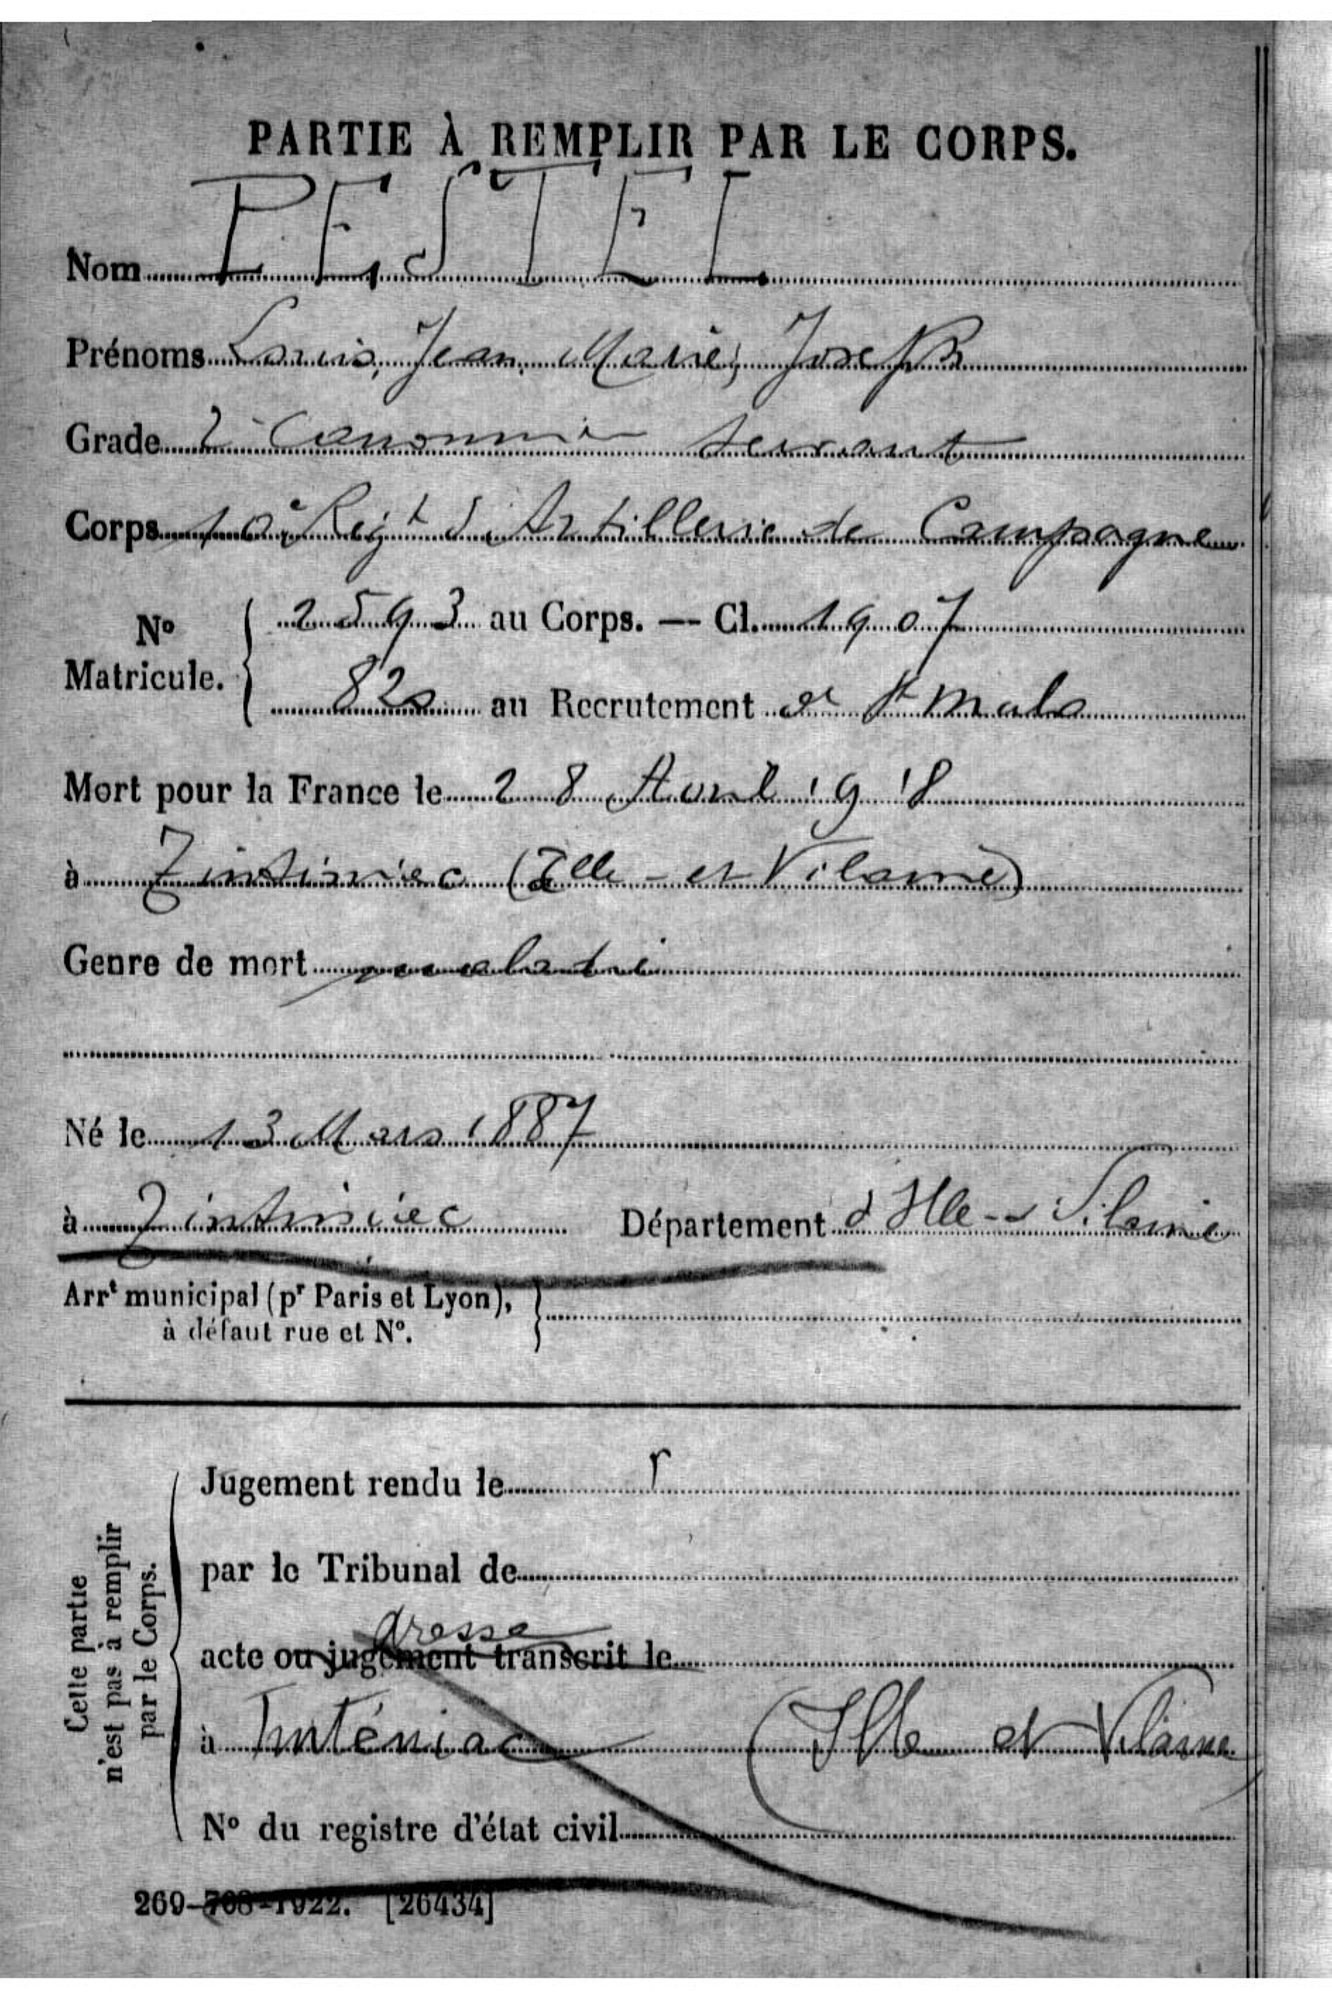 PARTIE À REMPLIR PAR LE CORPS.
Nom PESTEL
Prénoms Louis, Jean, Marie, Joseph
Grade 2e Canonnier servant
Corps 10e Regt d'Artillerie de Campagne
No Matricule. 2593 au Corps. — Cl. 1907
820 au Recrutement de St Malo
Mort pour la France le 28 Avril 1918
à Tintiniec (Ille-et-Vilaine)
Genre de mort maladie
Né le 13 Mars 1887
à Tintiniec Département d'Ille-et-Vilaine
Arrt municipal (pr Paris et Lyon),
à défaut rue et No.
Cette partie
n'est pas à remplir
par le Corps.
Jugement rendu le
par le Tribunal de
dressé
acte ou jugement transcrit le
à Tinténiac (Ille et Vilaine)
No du registre d'état civil
269-708-1922. [26434]